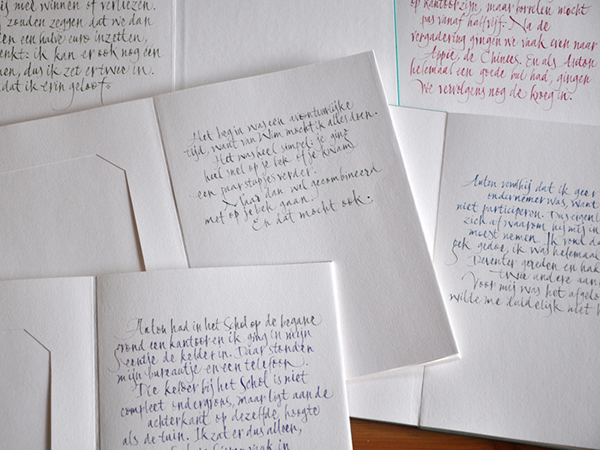 is mee winnen of verliezen.
zouden zeggen dat we dan
en een halve euro inzetten,
enkt: ik kan er ook nog een
nen, dus ik zet er twee in
dat ik erin geloof.
op kantoor zijn, maar borrelen mocht
pas vanaf half vijf. Na de
vergadering gingen we vaak even naar
Appie, de Chinees. En als Anton
helemaal een goede bui had, gingen
we vervolgens nog de kroeg in.
Het begin was een avontuurlijke
tijd, want van Wim mocht ik alles doen.
Het was heel simpel: je ging
heel snel op je bek of je kwam
een paar stapjes verder.
Maar dan wel gecombineerd
met op je bek gaan.
En dat mocht ook.
Anton vond bij dat ik geen
ondernemer was, want
niet participeren. Dus
zich af waarom hij mij in
moest nemen. Ik vond da
gek gedoe, ik was helemaal
Deventer gereden en had
twee andere aan
Voor mij was het afgelo
wilde me duidelijk niet h
Anton had in het Schol op de begane
grond een kantoor en ik ging in mijn
eendje de kelder in. Daar stonden
mijn bureautje en een telefoon.
Die kelder bij het Schol is niet
compleet ondergronds, maar ligt aan de
achterkant op dezelfde hoogte
als de tuin. Ik zat er dus alleen,